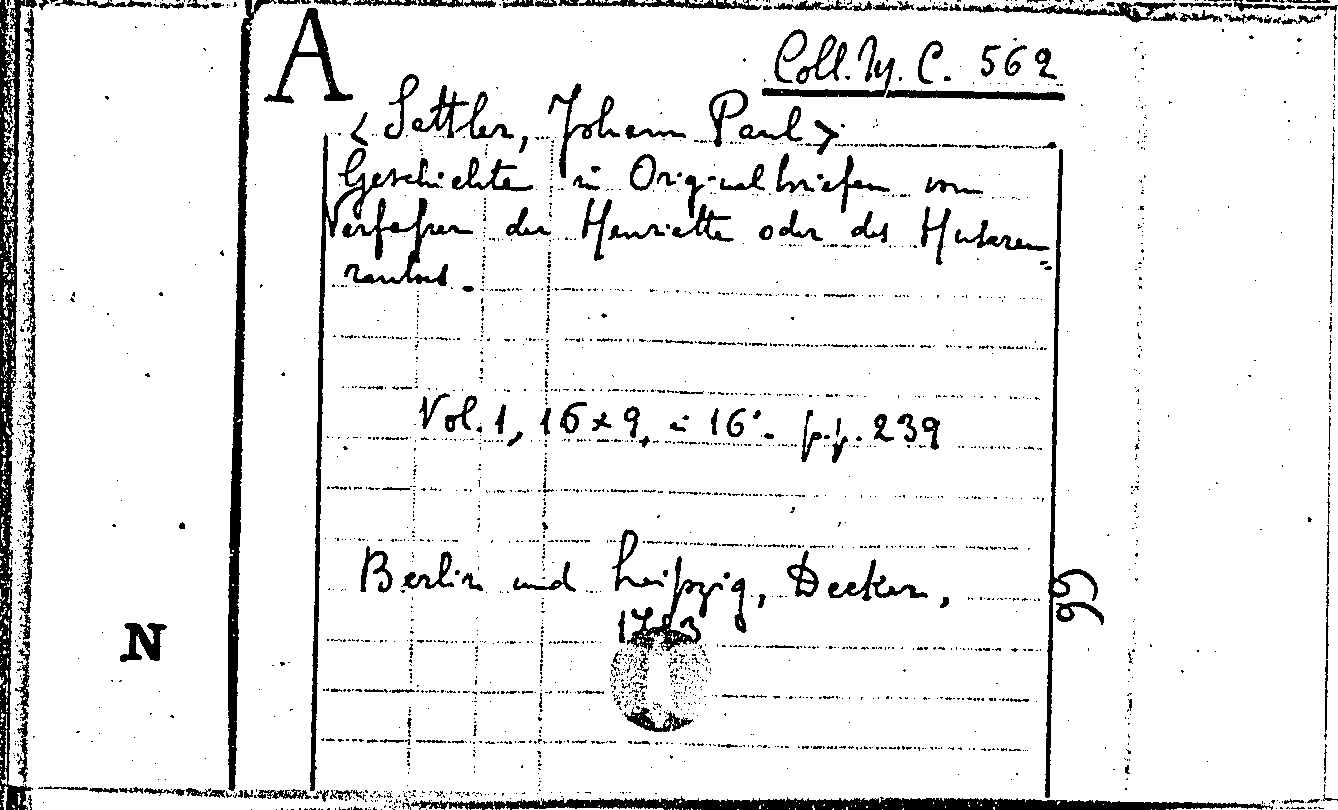 A
Coll. N. C. 562
< Sattler, Johann Paul >
Geschichte in Originalbriefen vom
Verfasser der Henriette oder des Husaren=
raubes.
Vol. 1, 16 x 9, in 16°. pp. 239
Berlin und Leipzig, Decker,
N